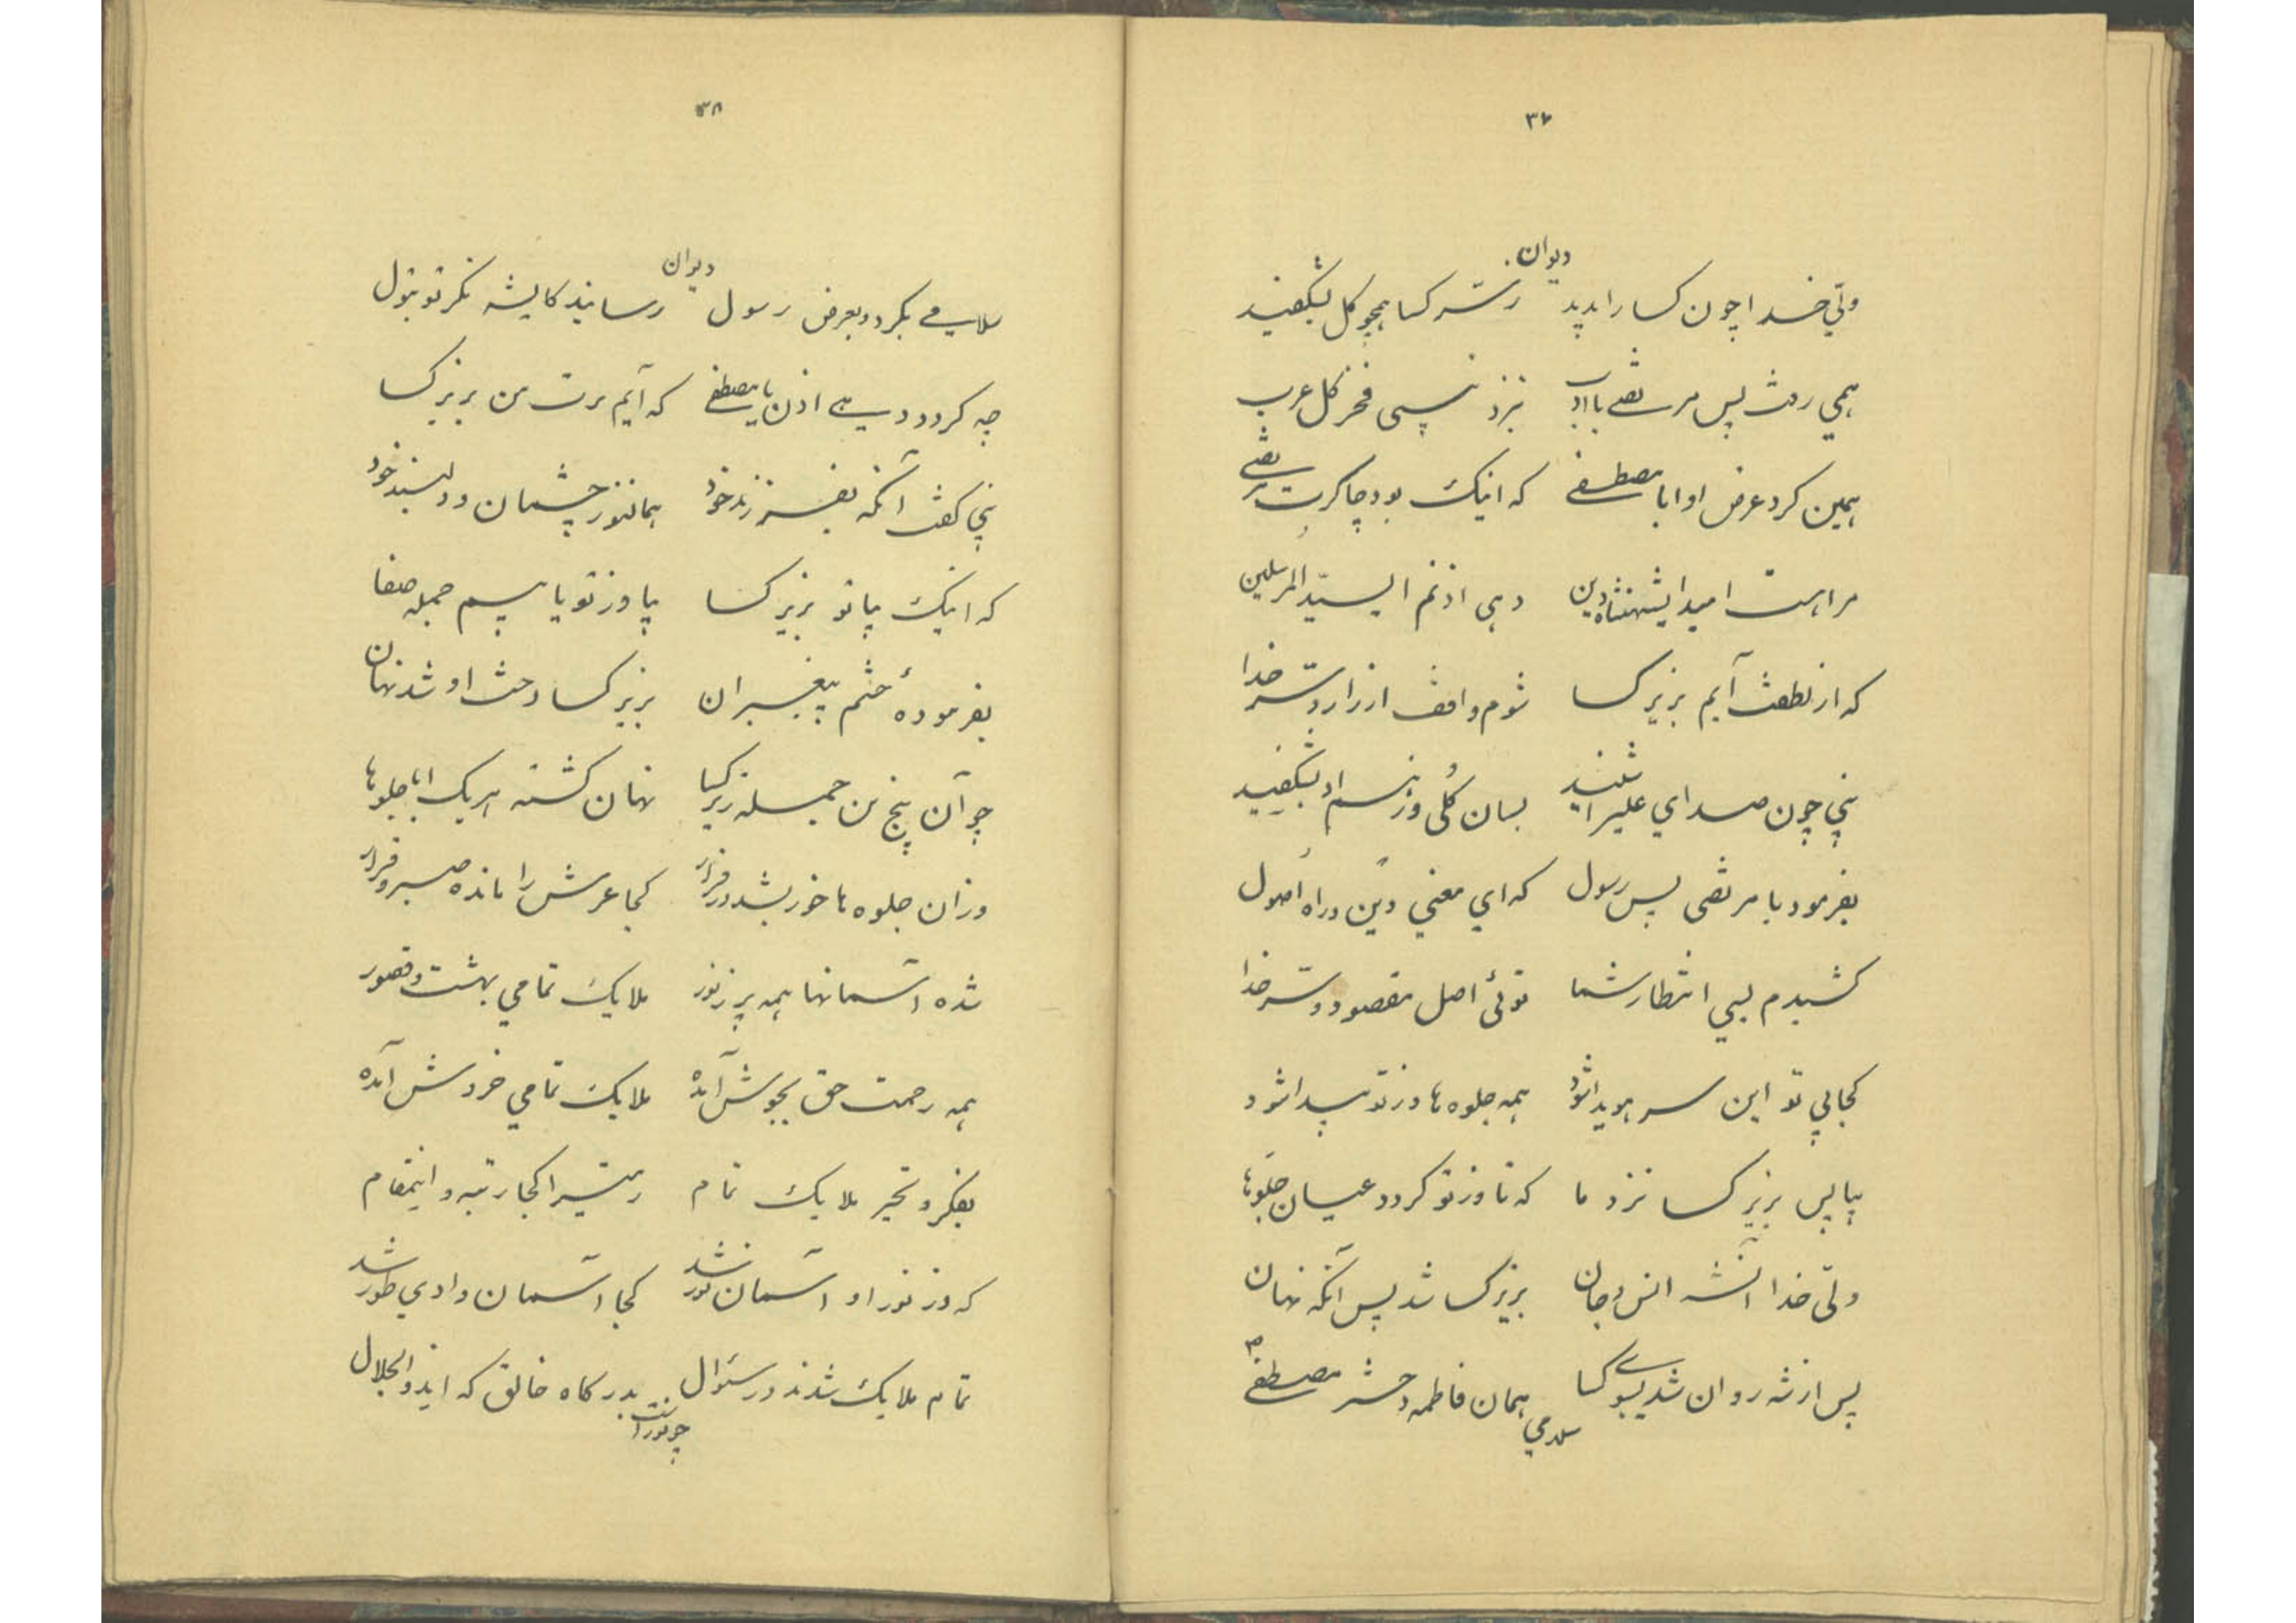 ۳۷
دیوان
ولیّ خدا چون کسا را بدید ز سرّ کسا همچو کل بشکفید
همی رفت پس مرتضی با ادب بنزد نبی فخر کل عرب
همین کرد عرض او ابا مصطفی که اینک بود چاکرت مرتضی
مرا هست امید ایشهنشاه دین دهی اذنم ای سیّد المرسلین
که از لطفت آیم بزیر کسا شوم واقف از راز و سرّ خدا
نبی چون صدای علیرا شنید بسان کُلی وز نسم او بشکفید
بفرمود با مرتضی پس رسول که ای معنی دین و راه اصول
کشیدم بسی انتظار شما توئی اصل مقصود و سرّ خدا
کجا بی تو این سر هویدا شود همه جلوه ها وز تو پیدا شود
بیا پس بزیر کسا نزد ما که تا وز تو کردد عیان جلوها
ولیّ خدا آنشه انس و جان بزیر کسا شد پس آنکه نهان
پس از شه روان شد بسوی کسا همان فاطمه دخت مصطفی
سلامی
۳۸
دیوان
سلامی بکرد و بعرض رسول رساند کایشه نکر تو بتول
چه کردد دهی اذن یا مصطفی که آیم برت من بزیر کسا
نبی کفت آنکه بفرزند خود همانور چشمان و دلبند خود
که اینک بیا تو بزیر کسا بیا وز تو یابیم جمله صفا
بفرمودهٔ ختم پیغمبران بزیر کسا دخت او شد نهان
چو آن پنج تن جمله زیر کسا نهان کشته هر یک ابا جلوها
وزان جلوه ها خور بشد در فرار کجا عرش را مانده صبر و قرار
شده آسمانها همه پر ز نور ملایک تمامی بهشت و قصور
همه رحمت حق بجوش آمده ملایک تمامی خروش آمده
بفکر و تحیر ملایک تمام زمینرا کجا رتبه و اینمقام
که وز نور او آسمان نور شد کجا آسمان وادی طور شد
تمام ملایک شدند در سئوال بدرکاه خالق که ایذوالجلال